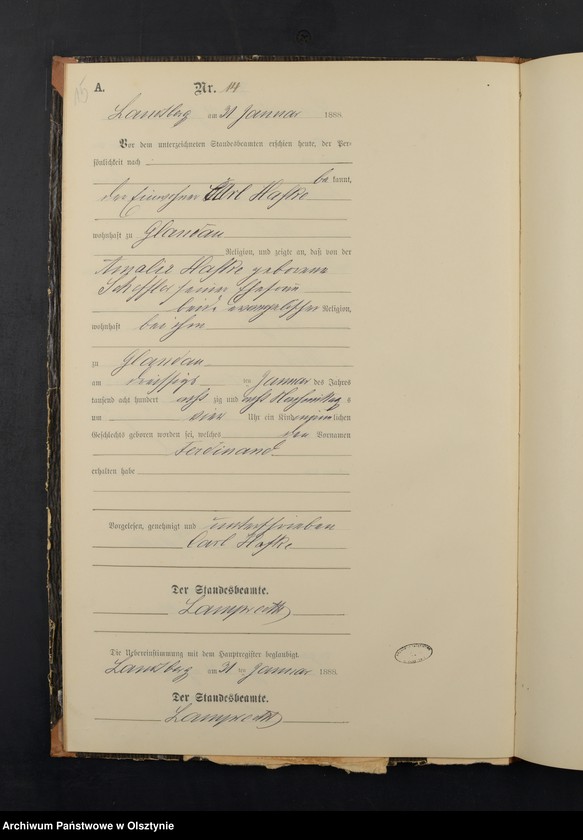 15
A.
Nr. 14
Landsberg am 31 Januar 1888.
Vor dem unterzeichneten Standesbeamten erschien heute, der Per-
sönlichkeit nach
be kannt,
der Einwohner Carl Hafke
wohnhaft zu Glandau
Religion, und zeigte an, daß von der
Amalie Hafke geborene
Scheffler seiner Ehefrau
beide evangelischer Religion,
wohnhaft bei ihm
zu Glandau
am dreissigs ten Januar des Jahres
tausend acht hundert acht zig und acht Nachmittag s
um vier Uhr ein Kind männlichen
Geschlechts geboren worden sei, welches den Vornamen
Ferdinand
erhalten habe
Vorgelesen, genehmigt und unterschrieben
Carl Hafke
Der Standesbeamte.
Lamprecht
Die Uebereinstimmung mit dem Hauptregister beglaubigt.
Landsberg am 31 ten Januar 1888.
Der Standesbeamte.
Lamprecht
Archiwum Państwowe w Olsztynie